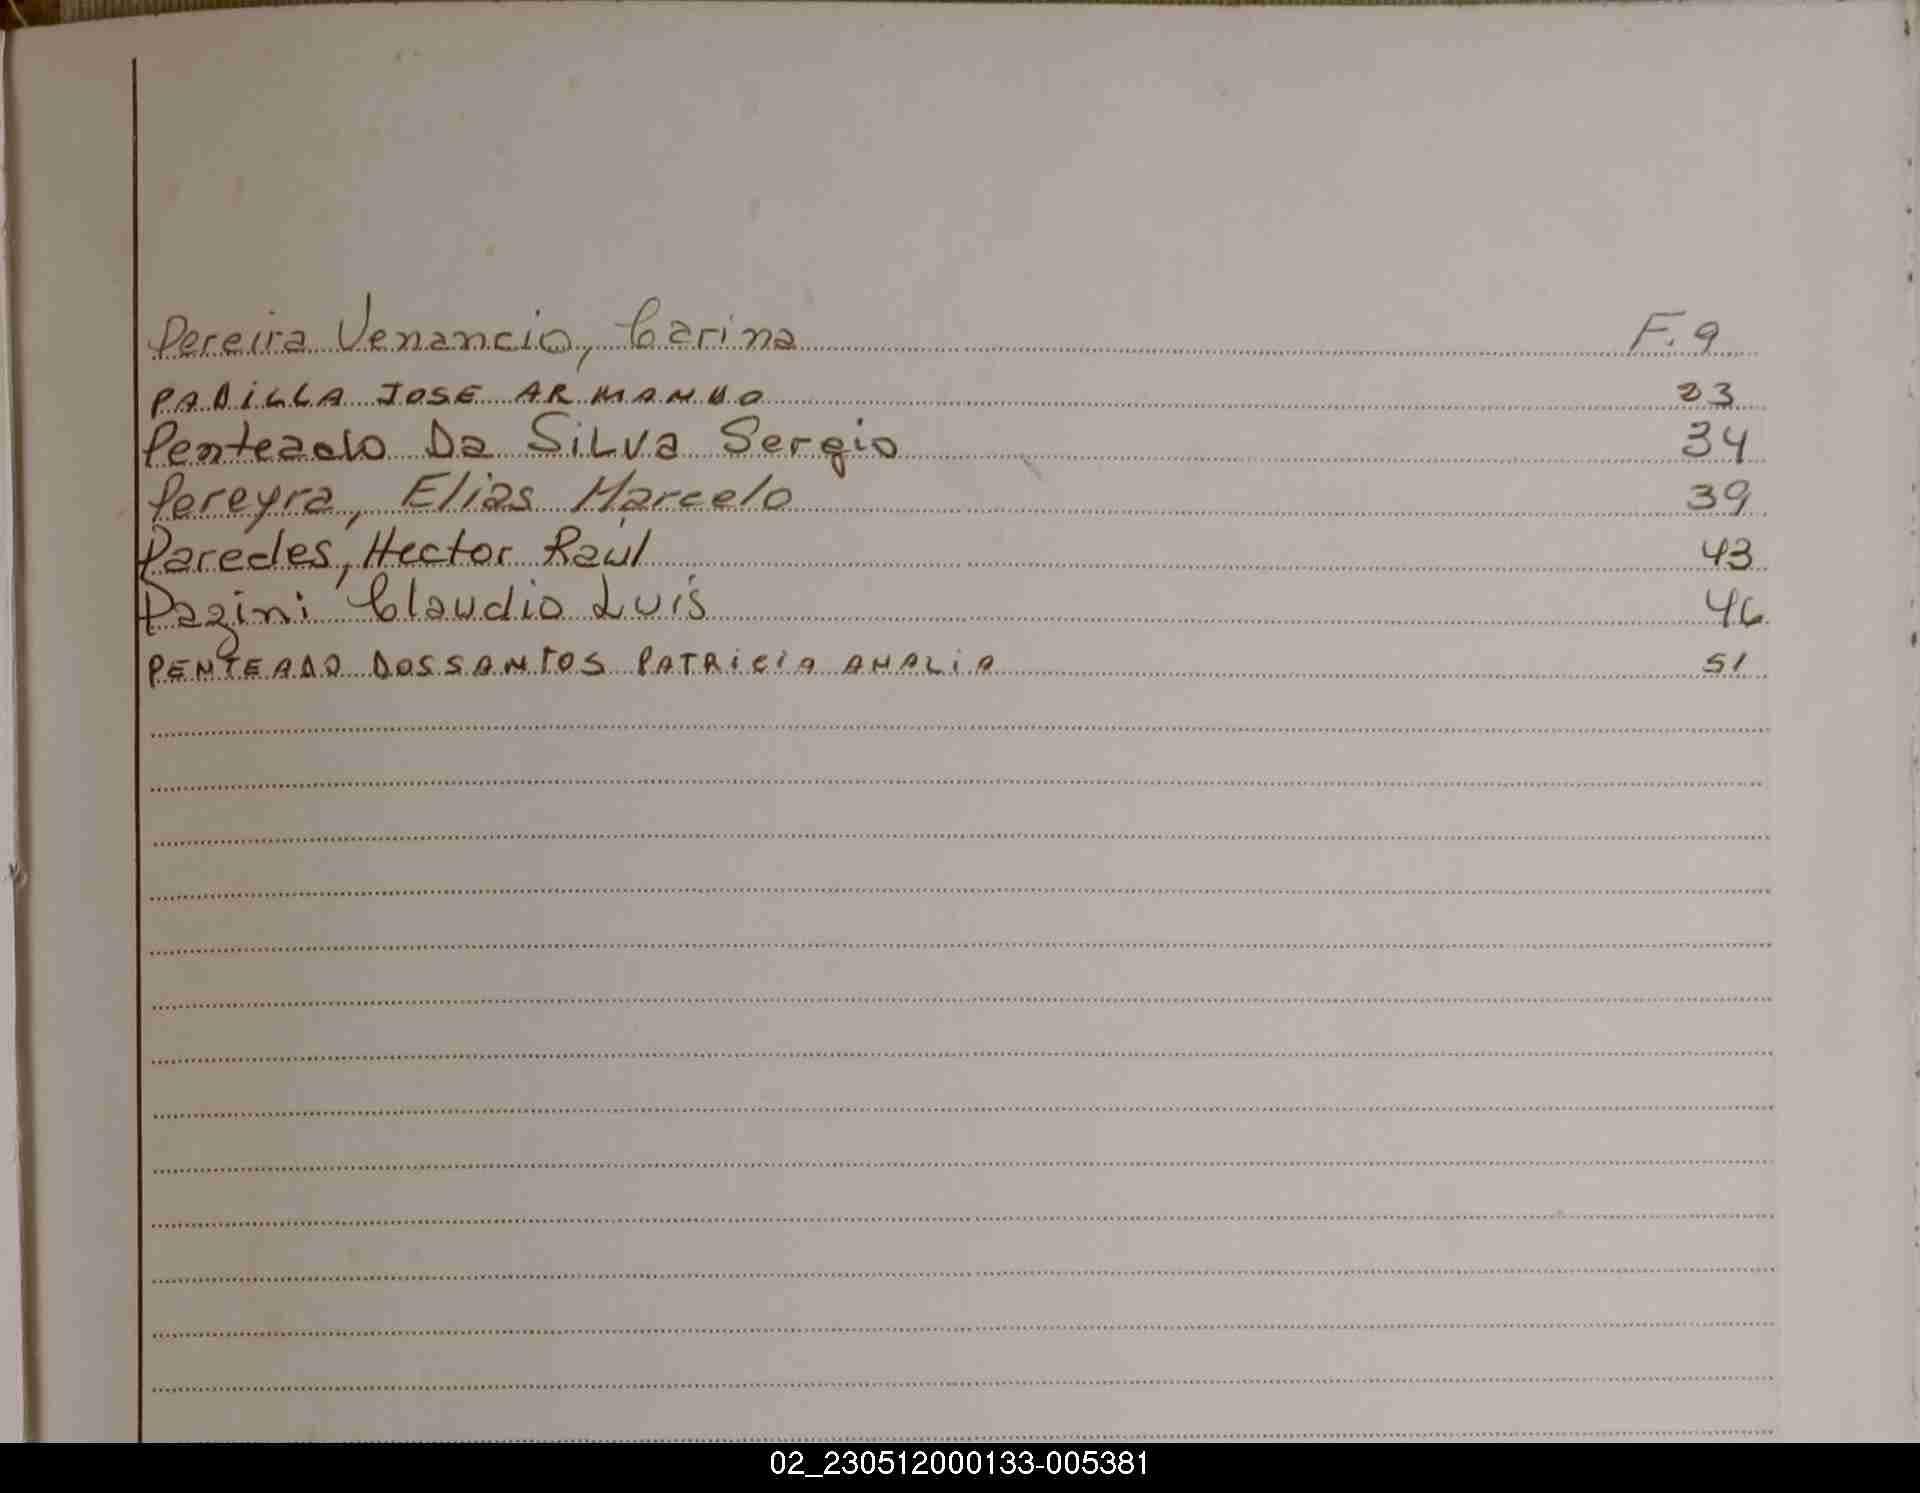 Pereira Venancio, Carina F. 9
PADILLA JOSE ARMANDO 23
Penteado Da SiLva Sergio 34
Pereyra, Elias Marcelo 39
Paredes, Hector Raúl 43
Pazini Claudio Luis 46
PENTEADO DOSSANTOS PATRICIA AMALIA 51
02_230512000133-005381